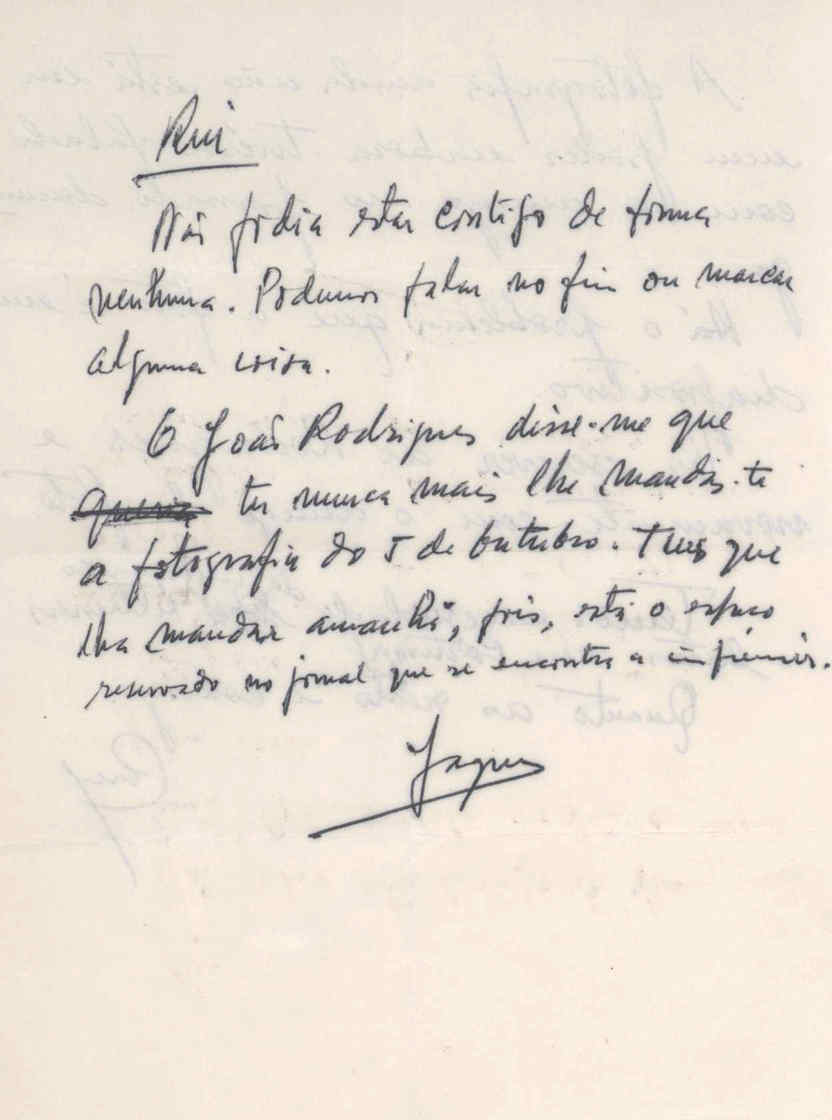 Rui
Não podia estar contigo de forma
nenhuma. Podemos falar no fim ou marcar
alguma coisa.
O João Rodrigues disse-me que
queria tu nunca mais lhe mandas-te
a fotografia do 5 de Outubro. Tens que
lha mandar amanhã, pois, está o espaço
reservado no jornal que se encontra a imprimir.
Jaques